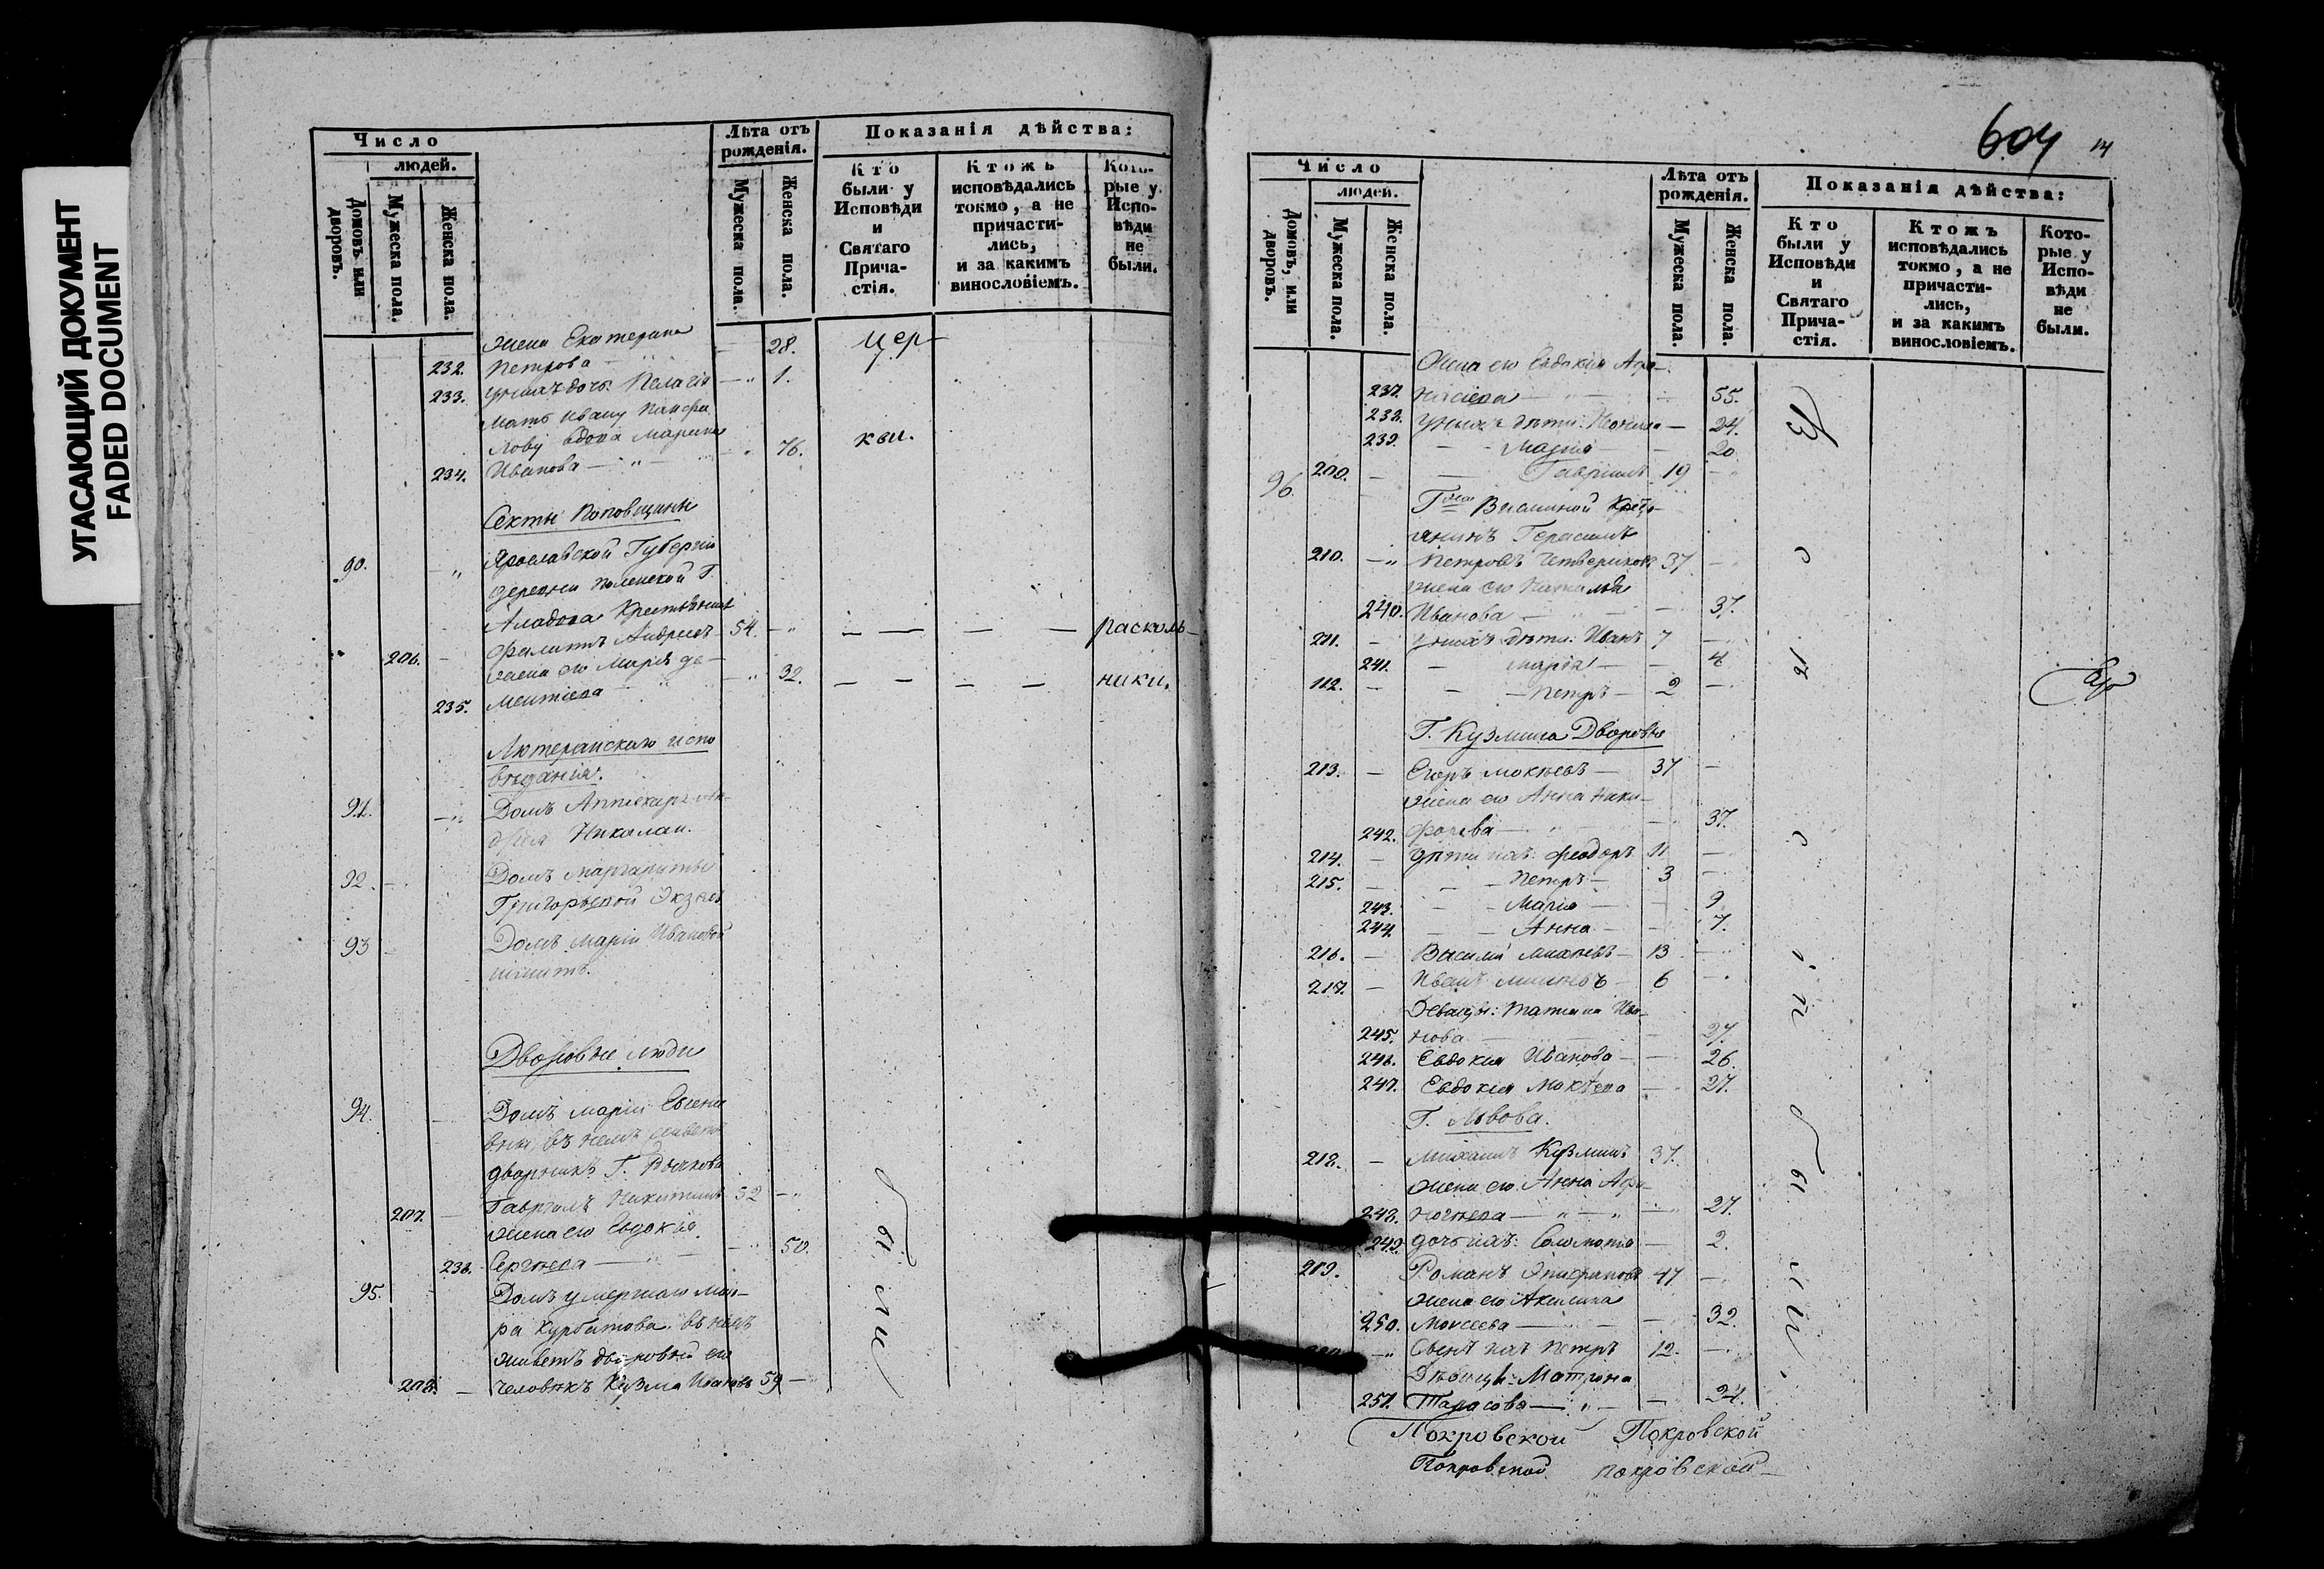 УГАСАЮЩИЙ ДОКУМЕНТ
FADED DOCUMENT
Число
людей.
Домовъ или дворовъ.
Мужеска пола.
Женска пола.
Лѣта отъ рожденія.
Мужеска пола.
Женска пола.
Показанія дѣйства:
Кто были у Исповѣди и Святаго Причастія.
Ктожъ исповѣдались токмо, а не причастились, и за какимъ винословіемъ.
Которые у Исповѣди не были.
жена Екатерина
232. Петрова — 28. цер-
233. у нихъ дочь Пелагія — 1.
мать Ивану
вдова Марина
234. Иванова — 76. кви.
Секты Поповщины
90. Ярославской Губерніи
деревни Г.
Крестьянинъ
206. Андреевъ 54. — — — — расколь-
жена его Марія де-
235. ментіева — 32. — — — — ники.
Лютеранскаго испо
вѣданія.
91. Домъ Аптекаря
Николаи.
92. Домъ Маргариты
Григорьевой
93 Домъ Маріи Ивановой
Дворовые люди
94. Домъ Маріи Евгени
въ немъ живетъ
дворникъ Г.
207. Гавріилъ Никитинъ 52
жена его Евдокія
236. Сергѣева — 50.
были
95. Домъ умершаго Маіо-
ра Курбатова. въ немъ
живетъ дворовый его
208. — человѣкъ Кузма Ивановъ 59 —
604 14
Число
людей.
Домовъ, или дворовъ.
Мужеска пола.
Женска пола.
Лѣта отъ рожденія.
Мужеска пола.
Женска пола.
Показанія дѣйства:
Кто были у Исповѣди и Святаго Причастія.
Ктожъ исповѣдались токмо, а не причастились, и за какимъ винословіемъ.
Которые у Исповѣди не были.
Жена его Евдокія Афа-
237. насіева — 55.
238. у нихъ дѣти: — 24.
239. — Марія — 20
200. — Гавріилъ 19 —
96. Крестья-
янинъ Герасимъ
210. — Петровъ Четвериковъ 37 —
жена его Наталья
240. Иванова — 37.
211. — у нихъ дѣти: Иванъ 7 —
241. — Марія — 4
112. — — Петръ — 2 —
Г. Кузмина Дворовые
213. — Егоръ Мокѣевъ — 37 —
жена его Анна Ники-
242. форова — 37.
214. — дѣти ихъ: Феодоръ 11 —
215. — — Петръ — 3 —
243. — Марія — 9
244. — Анна — 7.
216. — Василій — 13 —
217. — Иванъ — 6 —
Девицы: Татьяна Ива-
245. нова — 27.
246. Евдокія Иванова — 26.
247. Евдокія Мокѣева — 27.
Г. Львова.
218. — Михаилъ Кузминъ 37.
жена его Анна Афа-
248. насьева — 27.
249. дочь ихъ: Соломонія — 2.
219. Романъ 47 —
жена его Акилина
250. Моисеева — 32.
— Сынъ ихъ Петръ 12. —
Дѣвица: Матрона
251. Тарасова — 24.
Покровской Покровской
Покровской Покровской